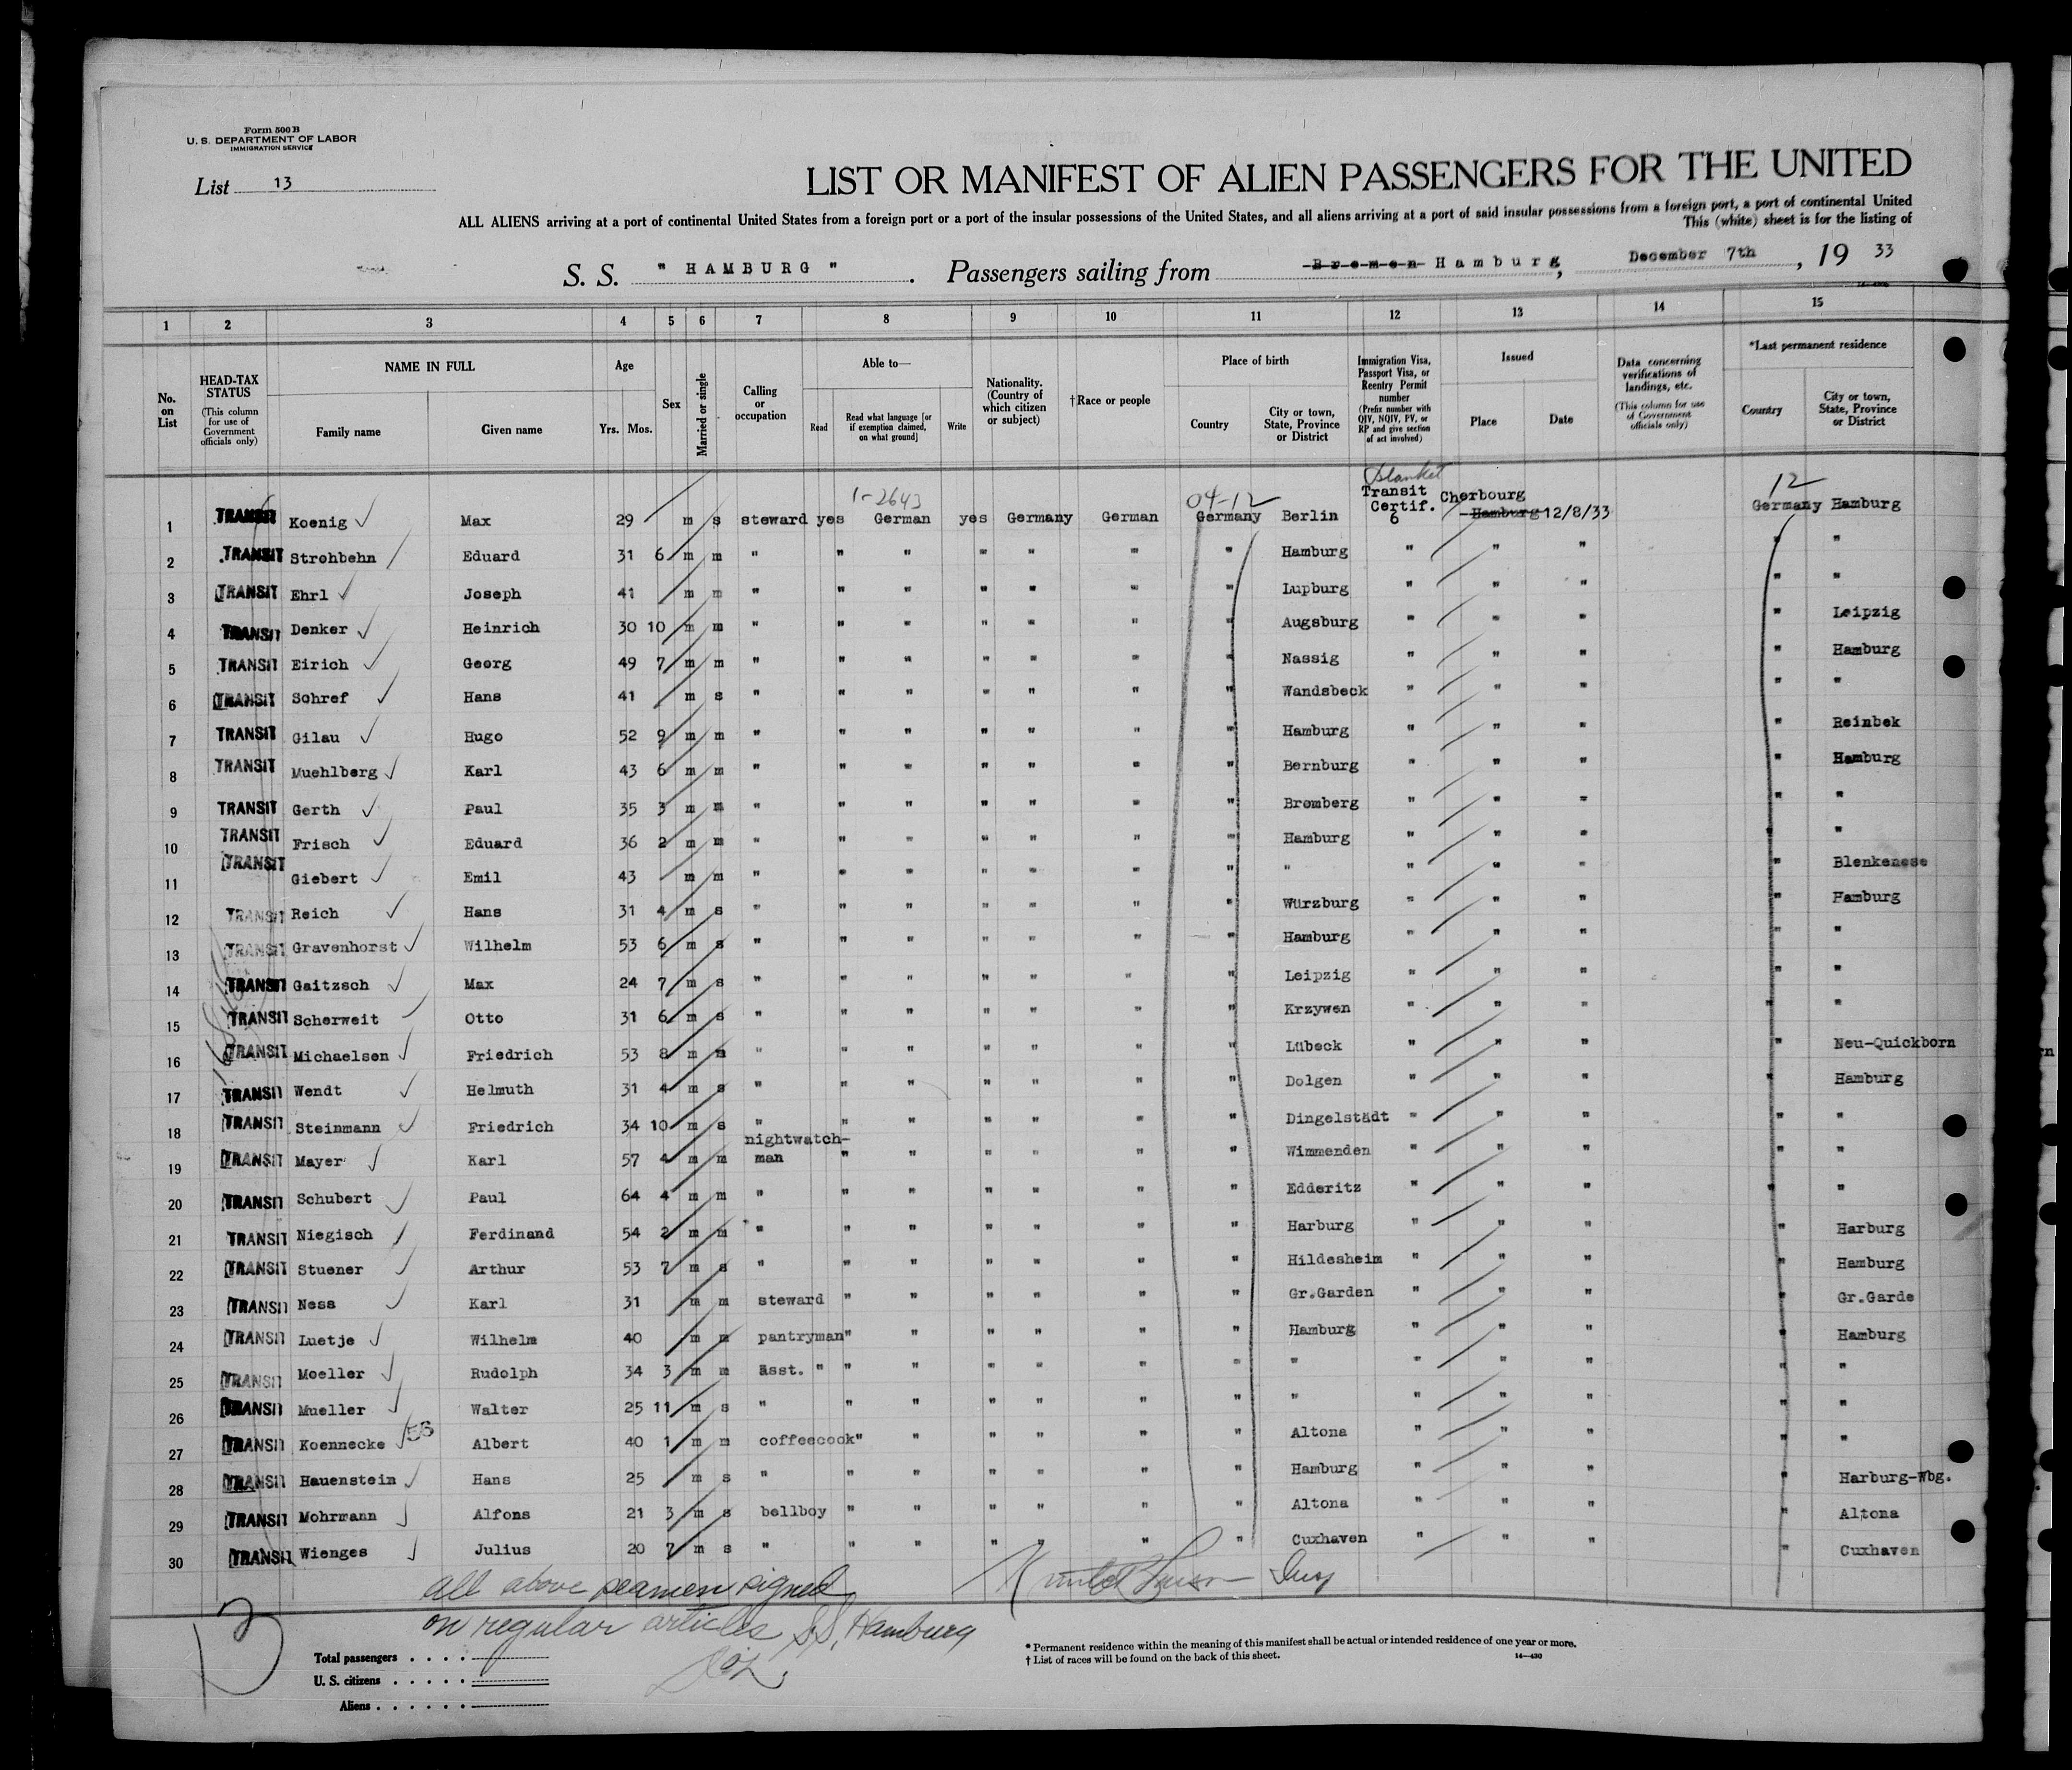 Form 500 B
U. S. DEPARTMENT OF LABOR
IMMIGRATION SERVICE
List 13
LIST OR MANIFEST OF ALIEN PASSENGERS FOR THE UNITED
ALL ALIENS arriving at a port of continental United States from a foreign port or a port of the insular possessions of the United States, and all aliens arriving at a port of said insular possessions from a foreign port, a port of continental United
This (white) sheet is for the listing of
S. S. " HAMBURG ". Passengers sailing from Bremen Hamburg, December 7th, 19 33
1 2 3 4 5 6 7 8 9 10 11 12 13 14 15
No. on List
HEAD-TAX STATUS (This column for use of Government officials only)
NAME IN FULL
Family name
Given name
Age
Yrs. Mos.
Sex
Married or single
Calling or occupation
Able to—
Read
Read what language [or if exemption claimed, on what ground]
Write
Nationality. (Country of which citizen or subject)
†Race or people
Place of birth
Country
City or town, State, Province or District
Immigration Visa, Passport Visa, or Reentry Permit number (Prefix number with QIV, NQIV, PV, or RP and give section of act involved)
Issued
Place
Date
Data concerning verifications of landings, etc. (This column for use of Government officials only)
*Last permanent residence
Country
City or town, State, Province or District
1-2643 04-12 Blanket 12
1 TRANSIT Koenig Max 29 m s steward yes German yes Germany German Germany Berlin Transit Certif. 6 Cherbourg Hamburg 12/8/33 Germany Hamburg
2 TRANSIT Strohbehn Eduard 31 6 m m " " " " " " " Hamburg " " " " "
3 TRANSIT Ehrl Joseph 41 m m " " " " " " " Lupburg " " " " "
4 TRANSIT Denker Heinrich 30 10 m m " " " " " " " Augsburg " " " " Leipzig
5 TRANSIT Eirich Georg 49 7 m m " " " " " " " Nassig " " " " Hamburg
6 TRANSIT Schref Hans 41 m s " " " " " " " Wandsbeck " " " " "
7 TRANSIT Gilau Hugo 52 9 m m " " " " " " " Hamburg " " " " Reinbek
8 TRANSIT Muehlberg Karl 43 6 m m " " " " " " " Bernburg " " " " Hamburg
9 TRANSIT Gerth Paul 35 3 m m " " " " " " " Bromberg " " " " "
10 TRANSIT Frisch Eduard 36 2 m m " " " " " " " Hamburg " " " " "
11 TRANSIT Giebert Emil 43 m m " " " " " " " " " " " " Blenkenese
12 TRANSIT Reich Hans 31 4 m s " " " " " " " Würzburg " " " " Hamburg
13 TRANSIT Gravenhorst Wilhelm 53 6 m s " " " " " " " Hamburg " " " " "
14 TRANSIT Gaitzsch Max 24 7 m s " " " " " " " Leipzig " " " " "
15 TRANSIT Scherweit Otto 31 6 m s " " " " " " " Krzywen " " " " "
16 TRANSIT Michaelsen Friedrich 53 8 m m " " " " " " " Lübeck " " " " Neu-Quickborn
17 TRANSIT Wendt Helmuth 31 4 m s " " " " " " " Dolgen " " " " Hamburg
18 TRANSIT Steinmann Friedrich 34 10 m s " " " " " " " Dingelstädt " " " " "
19 TRANSIT Mayer Karl 57 4 m m nightwatch-man " " " " " " Wimmenden " " " " "
20 TRANSIT Schubert Paul 64 4 m m " " " " " " " Edderitz " " " " "
21 TRANSIT Niegisch Ferdinand 54 2 m m " " " " " " " Harburg " " " " Harburg
22 TRANSIT Stuener Arthur 53 7 m s " " " " " " " Hildesheim " " " " Hamburg
23 TRANSIT Ness Karl 31 m m steward " " " " " " Gr.Garden " " " " Gr.Garde
24 TRANSIT Luetje Wilhelm 40 m m pantryman " " " " " " Hamburg " " " " Hamburg
25 TRANSIT Moeller Rudolph 34 3 m m asst. " " " " " " " " " " " " "
26 TRANSIT Mueller Walter 25 11 m s " " " " " " " " " " " " "
27 TRANSIT Koennecke 56 Albert 40 1 m m coffeecook " " " " " " Altona " " " " "
28 TRANSIT Hauenstein Hans 25 m s " " " " " " " Hamburg " " " " Harburg-Wbg.
29 TRANSIT Mohrmann Alfons 21 3 m s bellboy " " " " " " Altona " " " " Altona
30 TRANSIT Wienges Julius 20 7 m s " " " " " " " Cuxhaven " " " " Cuxhaven
all above seamen signed
on regular articles S.S. Hamburg
Total passengers
U. S. citizens
Aliens
* Permanent residence within the meaning of this manifest shall be actual or intended residence of one year or more.
† List of races will be found on the back of this sheet.
14—430